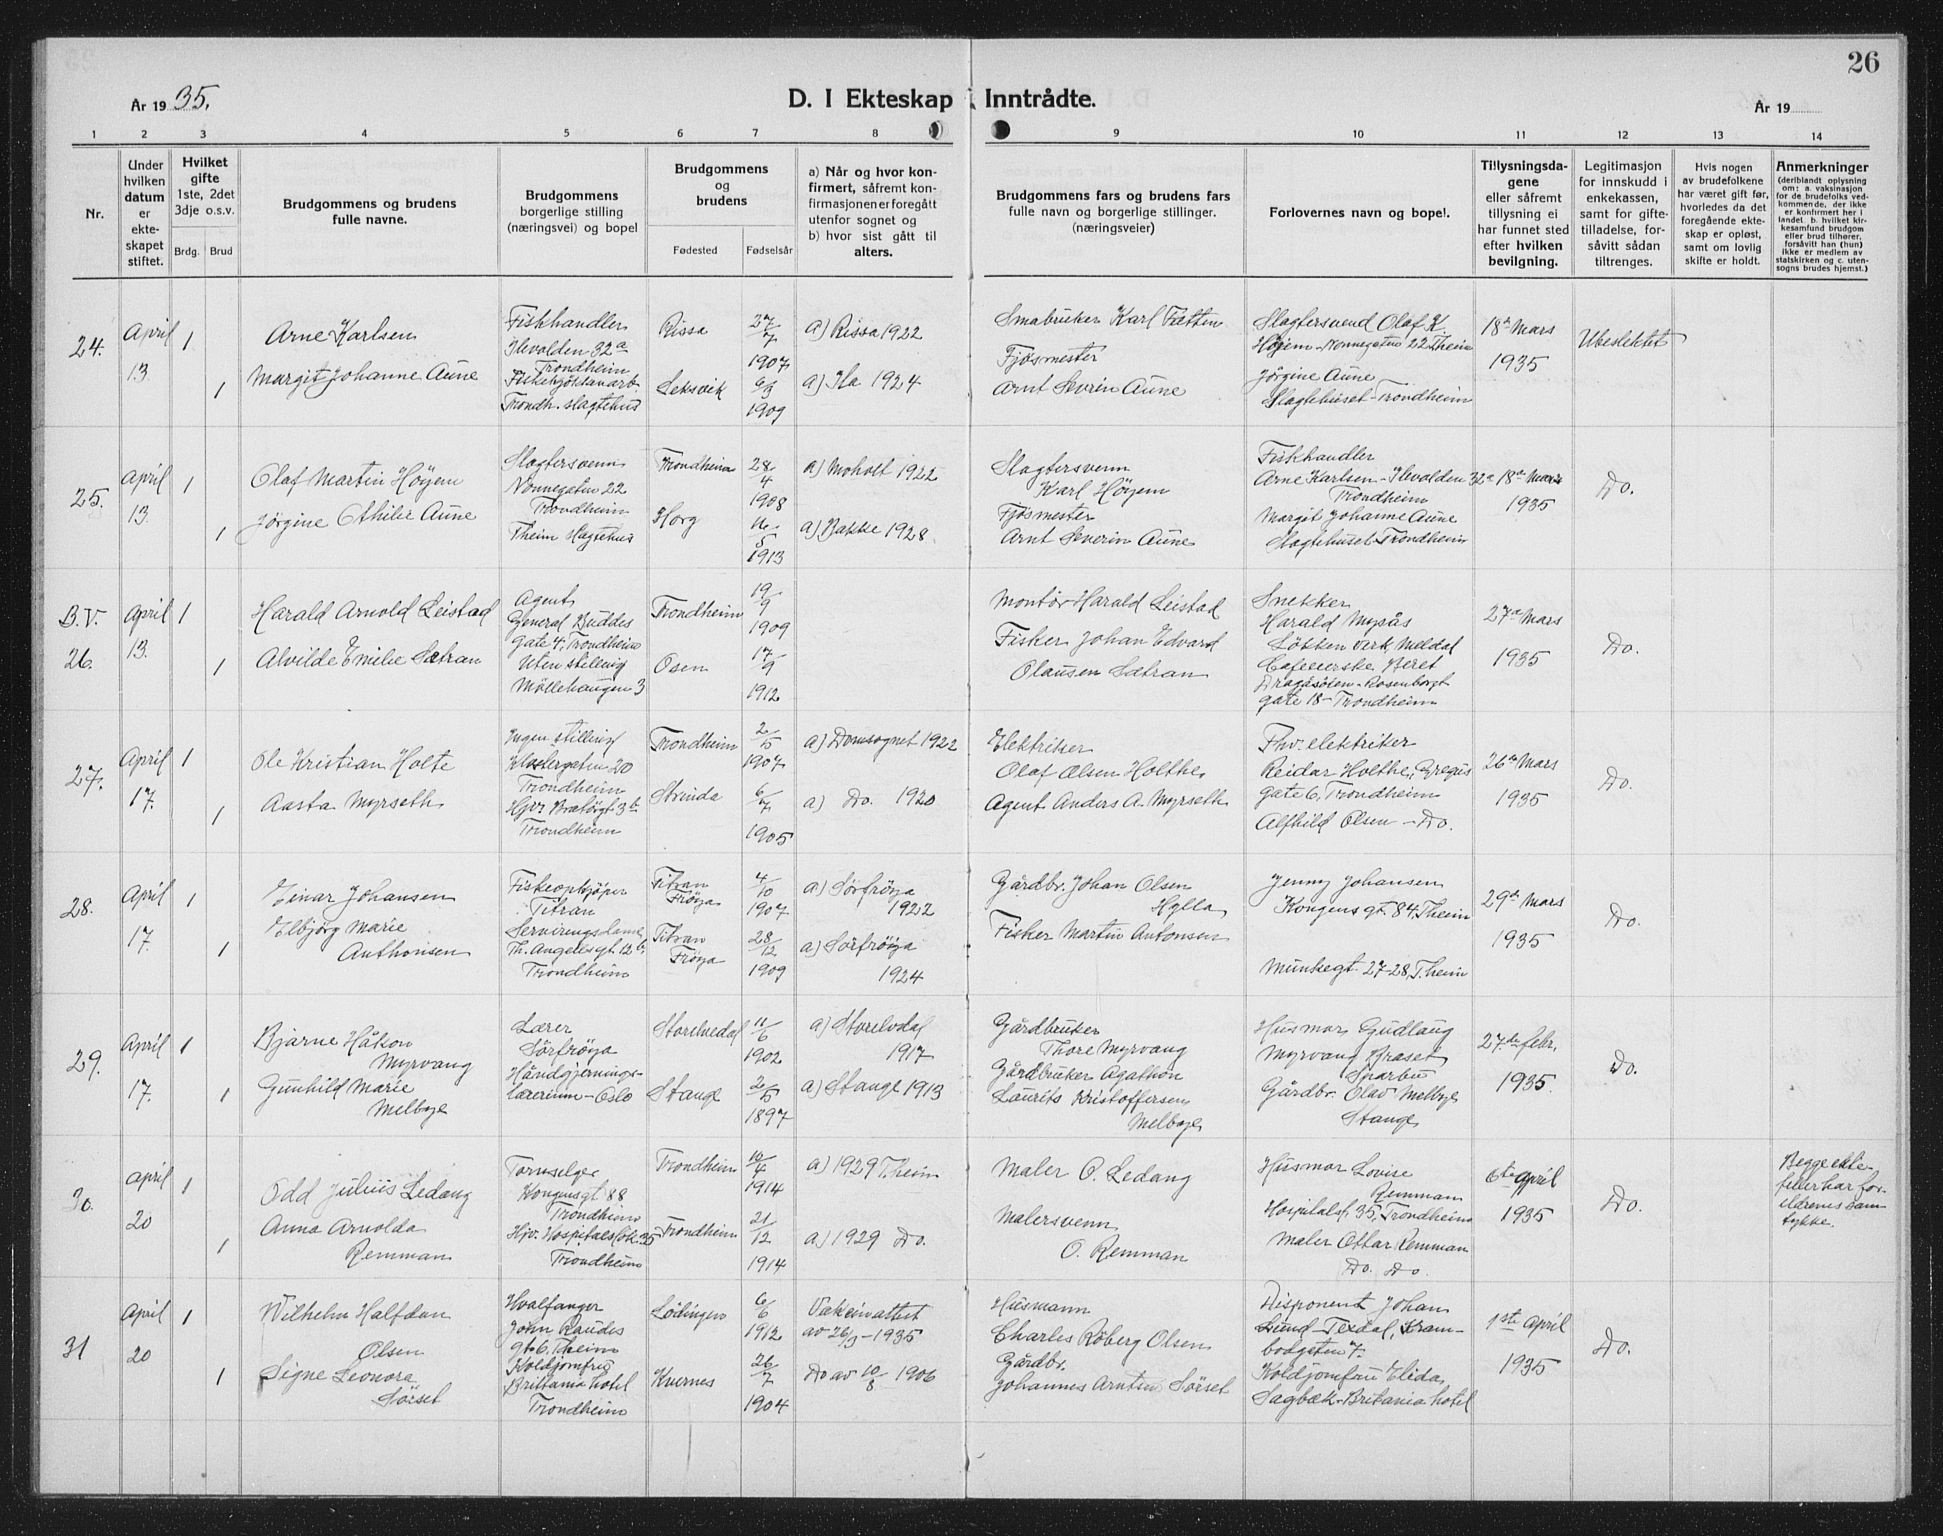 26
År 19 35.
D. I Ekteskap Inntrådte.
År 19
1 2 3 4 5 6 7 8 9 10 11 12 13 14
Nr.
Under hvilken datum er ekteskapet stiftet.
Hvilket gifte 1ste, 2det 3dje o.s.v.
Brdg. Brud
Brudgommens og brudens fulle navne.
Brudgommens borgerlige stilling (næringsvei) og bopel
Brudgommens og brudens
Fødested Fødselsår
a) Når og hvor konfirmert, såfremt konfirmasjonen er foregått utenfor sognet og
b) hvor sist gått til alters.
Brudgommens fars og brudens fars fulle navn og borgerlige stillinger. (næringsveier)
Forlovernes navn og bopel.
Tillysningsdagene eller såfremt tillysning ei har funnet sted efter hvilken bevilgning.
Legitimasjon for innskudd i enkekassen, samt for giftetilladelse, forsåvitt sådan tiltrenges.
Hvis nogen av brudefolkene har været gift før, hvorledes da det foregående ekteskap er opløst, samt om lovlig skifte er holdt.
Anmerkninger (deriblandt oplysning om: a. vaksinasjon for de brudefolks vedkommende, der ikke er konfirmert her i landet. b. hvilket kirkesamfund brudgom eller brud tilhører, forsåvitt han (hun) ikke er medlem av statskirken og c. utensogns brudes hjemst.)
24.
April 13
1
1
Arne Karlsen
Margit Johanne Aune
Fiskhandler
Ilevolden 32a
Trondheim
Trondh. slagtehus
Rissa
Leksvik
27/7 1907
6/3 1909
a) Rissa 1922
a) Ila 1924
Småbruker Karl Fætten
Fjøsmester
Arnt Severin Aune
Slagtersvend Olaf K.
Høyem - Nonnegaten 22 Theim
Jörgine Aune
Slagtehuset - Trondheim
18de Mars
1935
Ubeslektet
25.
April 13.
1
1
Olaf Martin Höyem
Jörgine Othilie Aune
Slagtersvenn
Nonnegaten 22
Trondheim
Theim Slagtehus
Trondheim
Horg
28/4 1908
16/5 1913
a) Moholt 1922
a) Bakke 1928.
Slagtersvenn
Karl Höyem
Fjösmester
Arnt Severin Aune
Fiskhandler
Arne Karlsen - Ilevolden 32a
Trondheim
Margit Johanne Aune
Slagtehuset - Trondheim
18de Mars
1935
Do.
B.V.
26.
April 13.
1
1
Harald Arnold Leistad
Alvilde Emilie Sætran
Agent
General Buddes
gate 4, Trondheim
Uten stilling
Möllehaugen 3
Trondheim
Osen
19/9 1909
17/9 1912
Montör Harald Leistad
Fisker Johan Edvard
Olausen Sætran
Snekker
Harald Mysås
Løkken Verk, Meldal
Cafeeierske Beret
Dragåsen - Rosenborgt
gate 18 - Trondheim
27de Mars
1935
Do.
27.
April 17.
1
1
Ole Kristian Holte
Aasta Myrseth
Ingen stilling
Klostergaten 20
Trondheim
Hjv. Bratörgt 3b
Trondheim
Trondheim
Strinda
2/5 1907
6/7 1905
a) Domsognet 1922
a) Do. 1920
Elektriker
Olaf Olsen Holthe
Agent Anders A. Myrseth
Fhv. elektriker
Reidar Holthe, Gregus
gate 6, Trondheim
Alfhild Olsen - Do.
26de Mars
1935
Do.
28.
April 17.
1
1
Einar Johansen
Elbjörg Marie
Anthonisen
Fiskeopkjøper
Titran
Serveringsdame
Th. Angelsgt. 12b,
Trondheim
Titran
Fröya
Titran
Fröya
4/10 1907
28/12 1909
a) Sörfröya
1922
a) Sörfröya
1924
Gårdbr. Johan Olsen
Hylla
Fisker Martin Antonsen
Jenny Johansen
Kongensgt. 84, Theim
Munkegt. 27-28, T.heim
29de Mars
1935
Do.
29.
April 17.
1
1
Bjarne Håkon
Myrvang
Gunhild Marie
Melbye
Lærer
Sörfröya
Håndgjernings-
lærerinne - Oslo
Storelvedal
Stange
11/6 1902
2/5 1897
a) Storelvdal
1917
a) Stange 1913
Gårdbruker
Thore Myrvang
Gårdbruker Agathon
Laurits Kristoffersen
Melbye
Husmor Gudlaug
Myrvang Braset
Sparbu
Gårdbr. Olav Melbye
Stange
27de febr.
1935.
Do.
30.
April 20
1
1
Odd Julius Ledang
Anna Arnolda
Remman
Kongensgt 88
Trondheim
Trondheim
Trondheim
Trondheim
10/4 1914
21/12 1914
a) 1929 T.heim
a) 1929 Do.
Maler O. Ledang
Malersvenn
O. Remman
Husmor Lovise
Remman
Hospitalsl. 35, Trondheim
Maler Ottar Remman
Do. Do.
6te April
1935
Do.
Begge ekte-
feller har for-
eldrenes sam-
tykke.
31
April 20
1
1
Wilhelm Halfdan
Olsen
Signe Leonora
Sörset
Hvalfanger
John Raudes
gt 6. Theim
Koldjomfru
Brittania hotel
Trondheim
Lödingen
Kvernes
6/6 1912
26/7 1904
Vaksinattest
av 26/3 - 1935
Do av 10/8 1906
Husmann
Charles Röberg Olsen
Gårdbr.
Johannes Arntsen Sörset
Disponent Johan
Lund - Texdal, Kram-
bodgaten 7.
Koldjomfru Elida
Sagbak - Britania hotel
1ste April
1935
Do.